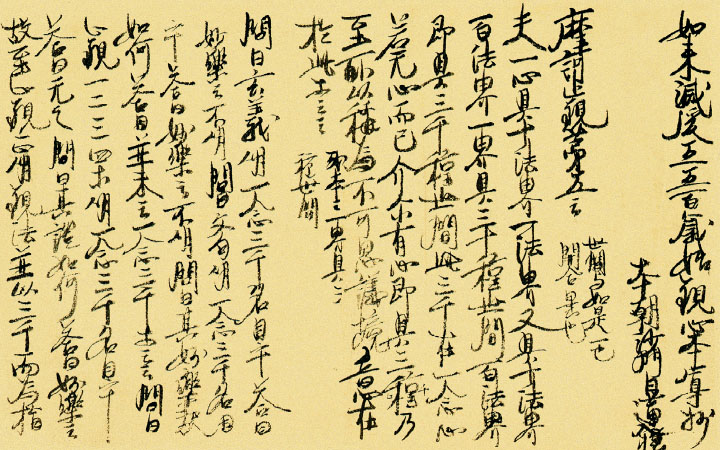 如来滅後五五百歳始観心本尊抄
本朝沙門日蓮撰
摩訶止観第五云 世間与如是一也 開合異也
夫一心具十法界一法界又具十法界
百法界一界具三十種世間百法界
即具三千種世間此三千在一念心
若无心而已介尓有心即具三千乃
至所以称為不可思議境意在
於此等云云 或本云一界具三
種世間
問曰玄義明一念三千名目乎答曰
妙楽云不明問曰文句明一念三千名目
乎答曰妙楽云不明問曰其妙楽釈
如何答曰並未云一念三千等云云問曰
止観一二三四等明一念三千名目乎
答曰无之問曰其証如何答曰妙楽云
故至止観正明観法並以三千而為指